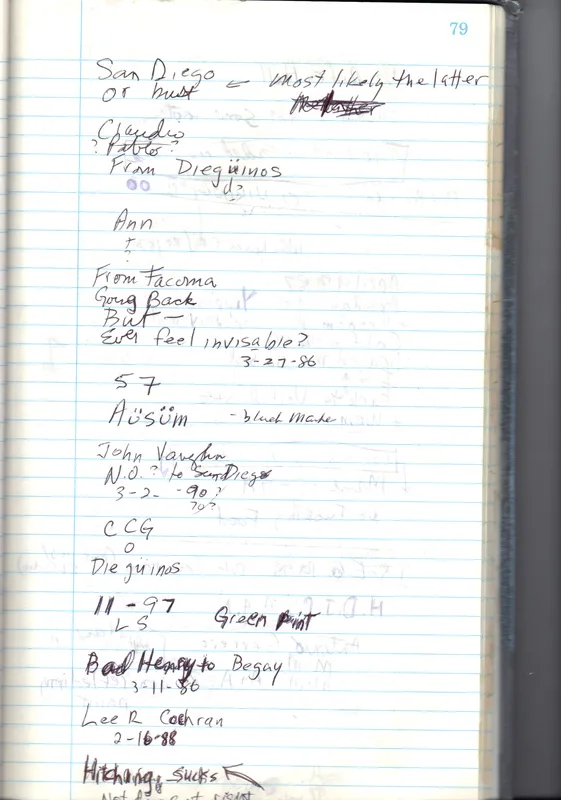 79
San Diego ← most likely the latter
or bust
Claudio
? Pablo ?
From Diegüinos
d?
Ann
T
?
From Tacoma
Going Back
But —
Ever feel invisable?
3-27-86
57
Aüsüm - black
John Vaughn
N.O. ? to San Diego
3-2- -90?
70?
CCG
O
Diegüinos
11-97
LS Green Paint
Bad Henry to Begay
3-11-86
Lee R Cochran
2-16-88
Hitching sucks